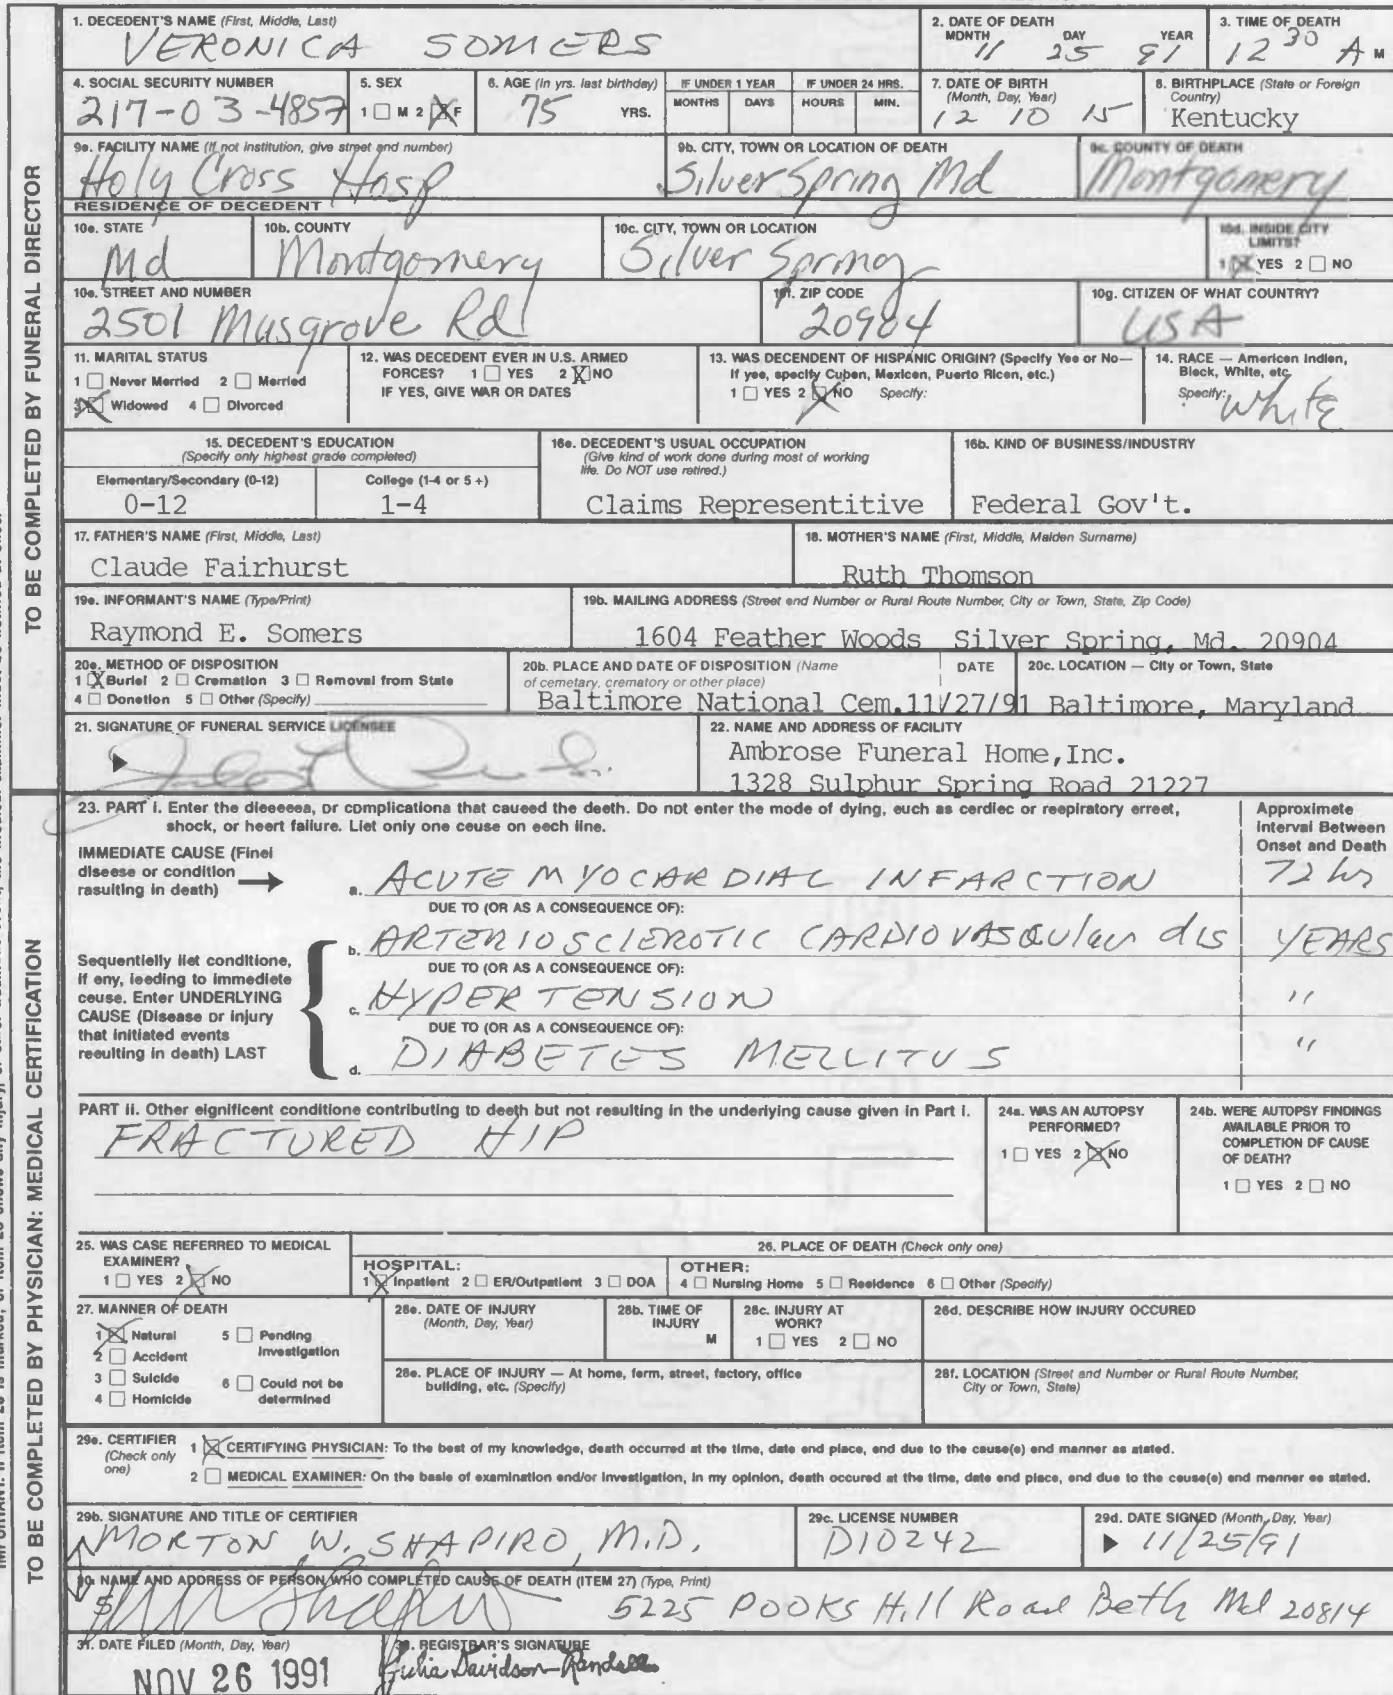 1. DECEDENT'S NAME (First, Middle, Last)
VERONICA SOMERS
2. DATE OF DEATH
MONTH DAY YEAR
11 25 91
3. TIME OF DEATH
12 30 A M
4. SOCIAL SECURITY NUMBER
217-03-4857
5. SEX
1 M 2 F
6. AGE (In yrs. last birthday)
75 YRS.
IF UNDER 1 YEAR
MONTHS DAYS
IF UNDER 24 HRS.
HOURS MIN.
7. DATE OF BIRTH
(Month, Day, Year)
12 10 15
8. BIRTHPLACE (State or Foreign
Country)
Kentucky
9a. FACILITY NAME (If not institution, give street and number)
Holy Cross Hosp
9b. CITY, TOWN OR LOCATION OF DEATH
Silver Spring Md
9c. COUNTY OF DEATH
Montgomery
RESIDENCE OF DECEDENT
10a. STATE
Md
10b. COUNTY
Montgomery
10c. CITY, TOWN OR LOCATION
Silver Spring
10d. INSIDE CITY
LIMITS?
1 YES 2 NO
10e. STREET AND NUMBER
2501 Musgrove Rd
10f. ZIP CODE
20904
10g. CITIZEN OF WHAT COUNTRY?
USA
11. MARITAL STATUS
1 Never Married 2 Married
3 Widowed 4 Divorced
12. WAS DECEDENT EVER IN U.S. ARMED
FORCES? 1 YES 2 X NO
IF YES, GIVE WAR OR DATES
13. WAS DECENDENT OF HISPANIC ORIGIN? (Specify Yes or No—
If yes, specify Cuban, Mexican, Puerto Rican, etc.)
1 YES 2 NO Specify:
14. RACE — American Indian,
Black, White, etc.
Specify: White
15. DECEDENT'S EDUCATION
(Specify only highest grade completed)
Elementary/Secondary (0-12) College (1-4 or 5+)
0-12 1-4
16a. DECEDENT'S USUAL OCCUPATION
(Give kind of work done during most of working
life. Do NOT use retired.)
Claims Representitive
16b. KIND OF BUSINESS/INDUSTRY
Federal Gov't.
17. FATHER'S NAME (First, Middle, Last)
Claude Fairhurst
18. MOTHER'S NAME (First, Middle, Maiden Surname)
Ruth Thomson
19a. INFORMANT'S NAME (Type/Print)
Raymond E. Somers
19b. MAILING ADDRESS (Street and Number or Rural Route Number, City or Town, State, Zip Code)
1604 Feather Woods Silver Spring, Md. 20904
20a. METHOD OF DISPOSITION
1 X Burial 2 Cremation 3 Removal from State
4 Donation 5 Other (Specify)
20b. PLACE AND DATE OF DISPOSITION (Name
of cemetary, crematory or other place)
DATE
Baltimore National Cem. 11/27/91
20c. LOCATION — City or Town, State
Baltimore, Maryland
21. SIGNATURE OF FUNERAL SERVICE LICENSEE
22. NAME AND ADDRESS OF FACILITY
Ambrose Funeral Home,Inc.
1328 Sulphur Spring Road 21227
TO BE COMPLETED BY FUNERAL DIRECTOR
23. PART I. Enter the diseases, or complications that caused the death. Do not enter the mode of dying, such as cardiac or respiratory arrest,
shock, or heart failure. List only one cause on each line.
Approximate
Interval Between
Onset and Death
IMMEDIATE CAUSE (Final
disease or condition
resulting in death)
a. ACUTE MYOCARDIAL INFARCTION 72 hrs
DUE TO (OR AS A CONSEQUENCE OF):
b. ARTERIOSCLEROTIC CARDIOVASCULAR dis YEARS
Sequentially list conditions,
if any, leading to immediate
cause. Enter UNDERLYING
CAUSE (Disease or injury
that initiated events
resulting in death) LAST
DUE TO (OR AS A CONSEQUENCE OF):
c. HYPERTENSION "
DUE TO (OR AS A CONSEQUENCE OF):
d. DIABETES MELLITUS "
PART II. Other significant conditions contributing to death but not resulting in the underlying cause given in Part I.
FRACTURED HIP
24a. WAS AN AUTOPSY
PERFORMED?
1 YES 2 NO
24b. WERE AUTOPSY FINDINGS
AVAILABLE PRIOR TO
COMPLETION OF CAUSE
OF DEATH?
1 YES 2 NO
25. WAS CASE REFERRED TO MEDICAL
EXAMINER?
1 YES 2 NO
26. PLACE OF DEATH (Check only one)
HOSPITAL:
1 Inpatient 2 ER/Outpatient 3 DOA
OTHER:
4 Nursing Home 5 Residence 6 Other (Specify)
27. MANNER OF DEATH
1 Natural 5 Pending
Investigation
2 Accident
3 Suicide 6 Could not be
determined
4 Homicide
28a. DATE OF INJURY
(Month, Day, Year)
28b. TIME OF
INJURY
M
28c. INJURY AT
WORK?
1 YES 2 NO
28d. DESCRIBE HOW INJURY OCCURED
28e. PLACE OF INJURY — At home, farm, street, factory, office
building, etc. (Specify)
28f. LOCATION (Street and Number or Rural Route Number,
City or Town, State)
29a. CERTIFIER
(Check only
one)
1 CERTIFYING PHYSICIAN: To the best of my knowledge, death occurred at the time, date and place, and due to the cause(s) and manner as stated.
2 MEDICAL EXAMINER: On the basis of examination and/or investigation, in my opinion, death occured at the time, date and place, and due to the cause(s) and manner as stated.
29b. SIGNATURE AND TITLE OF CERTIFIER
MORTON W. SHAPIRO, M.D.
29c. LICENSE NUMBER
D10242
29d. DATE SIGNED (Month, Day, Year)
11/25/91
30. NAME AND ADDRESS OF PERSON WHO COMPLETED CAUSE OF DEATH (ITEM 27) (Type, Print)
5225 POOKS Hill Road Beth Md 20814
31. DATE FILED (Month, Day, Year)
NOV 26 1991
32. REGISTRAR'S SIGNATURE
Julia Davidson-Randall
TO BE COMPLETED BY PHYSICIAN: MEDICAL CERTIFICATION